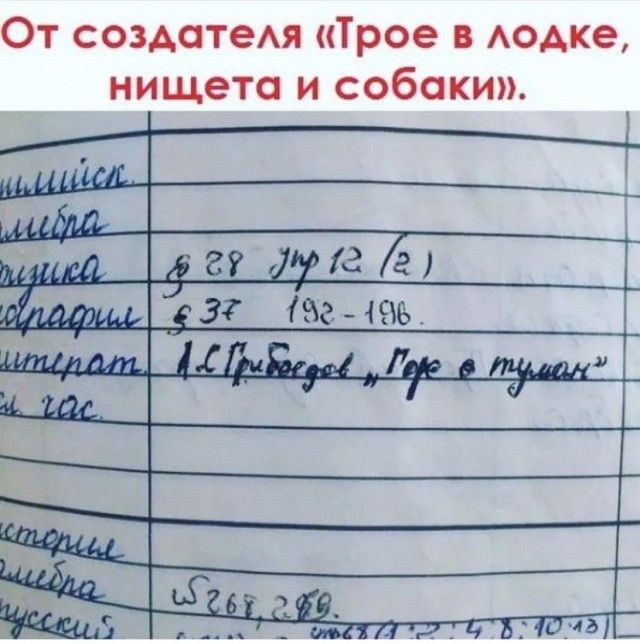 От создателя «Трое в лодке,
нищета и собаки».
глийск.
лгебра
физика § 28 упр 12 (2)
ография § 37 192-196.
итерат. А.С Грибоедов „Горе в туман"
л. час.
стория
лгебра №268, 269.
усский упр68(1:2; 4; 8; 10; 13)